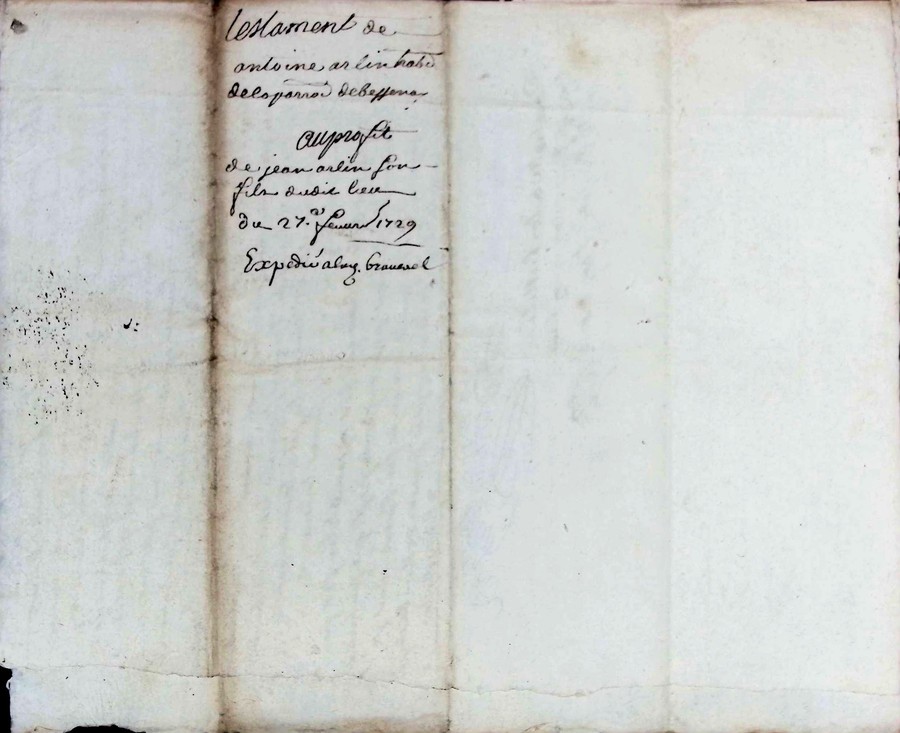 testament de
antoine arlin habt
de la parroi de bessena
au profit
de jean arlin son
fils dudit lieu
du 27.e feuvr 1729
Expedié